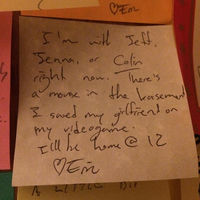 ♡Em
I'm with Jeff,
Jenna, or Colin
right now. There's
a mouse in the basement
I saved my girlfriend on
my videogame.
I'll be home @ 12
♡Em
A LITTLE